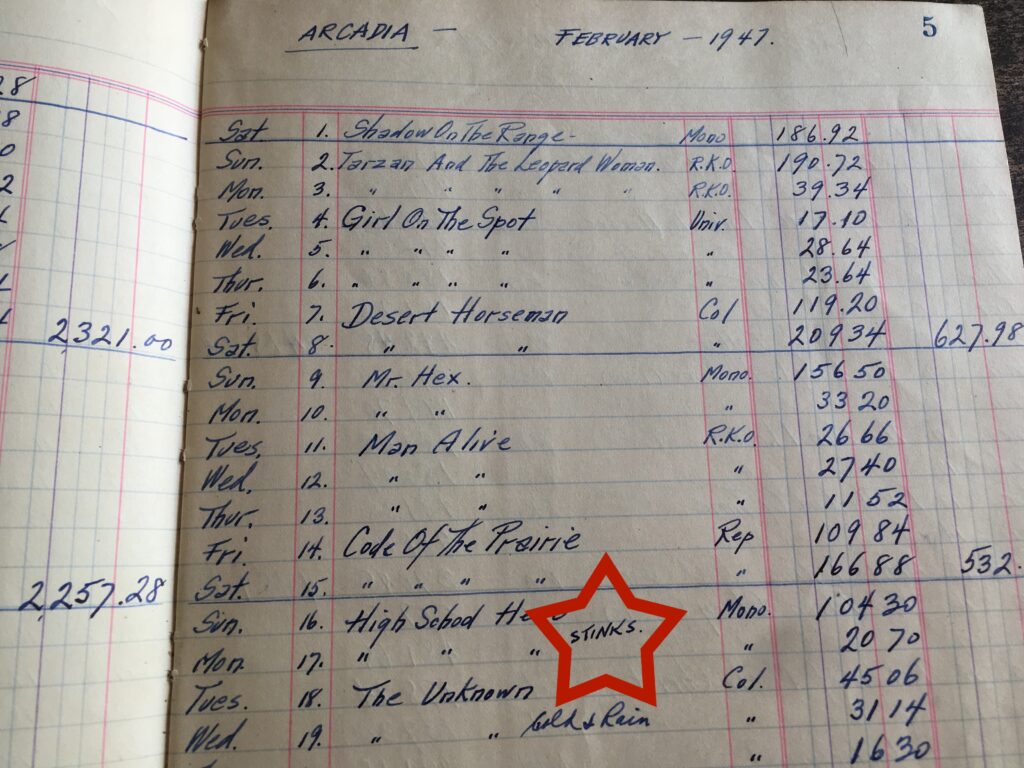 ARCADIA — FEBRUARY - 1947. 5
Sat. 1. Shadow On The Range - Mono 186.92
Sun. 2. Tarzan And The Leopard Woman. R.K.O. 190.72
Mon. 3. " " " " " R.K.O. 39.34
Tues. 4. Girl On The Spot Univ. 17.10
Wed. 5. " " " " " 28.64
Thur. 6. " " " " " 23.64
Fri. 7. Desert Horseman Col 119.20
2,321.00 Sat. 8. " " " 209 34 627.98
Sun. 9. Mr. Hex. Mono. 156 50
Mon. 10. " " " 33 20
Tues. 11. Man Alive R.K.O. 26 66
Wed. 12. " " " 27 40
Thur. 13. " " " 11 52
Fri. 14. Code Of The Prairie Rep 109 84
2,257.28 Sat. 15. " " " " " 166 88 532.
Sun. 16. High School Mono. 104 30
STINKS.
Mon. 17. " " " " 20 70
Tues. 18. The Unknown Col. 45 06
Cold & Rain
Wed. 19. " " " 31 14
" 16 30